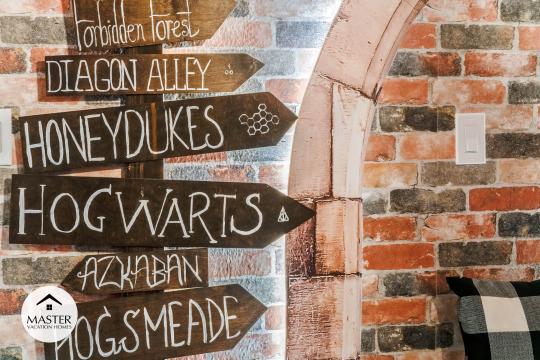 Forbidden Forest
DIAGON ALLEY
HONEYDUKES
HOGWARTS
AZKABAN
HOGSMEADE
MASTER
VACATION HOMES